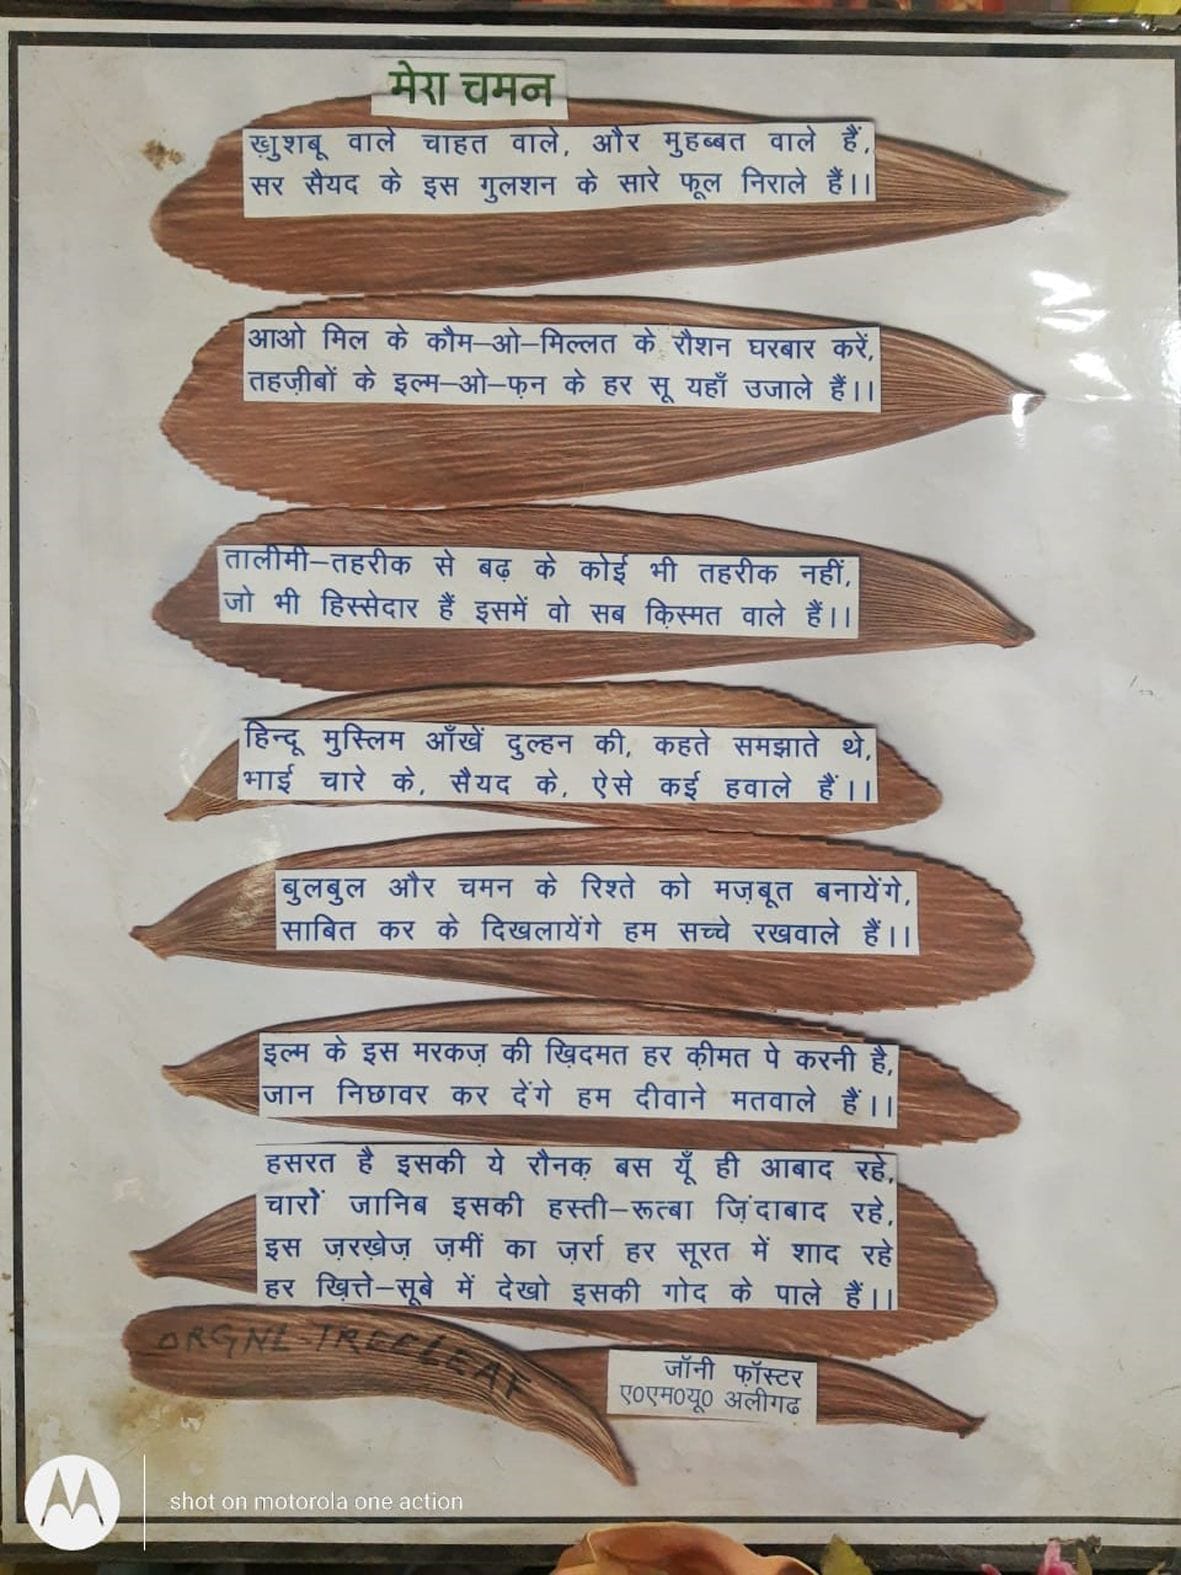 मेरा चमन
ख़ुशबू वाले चाहत वाले, और मुहब्बत वाले हैं,
सर सैयद के इस गुलशन के सारे फूल निराले हैं।।
आओ मिल के कौम–ओ–मिल्लत के रौशन घरबार करें,
तहज़ीबों के इल्म–ओ–फ़न के हर सू यहाँ उजाले हैं।।
तालीमी–तहरीक से बढ़ के कोई भी तहरीक नहीं,
जो भी हिस्सेदार हैं इसमें वो सब क़िस्मत वाले हैं।।
हिन्दू मुस्लिम आँखें दुल्हन की, कहते समझाते थे,
भाई चारे के, सैयद के, ऐसे कई हवाले हैं।।
बुलबुल और चमन के रिश्ते को मज़बूत बनायेंगे,
साबित कर के दिखलायेंगे हम सच्चे रखवाले हैं।।
इल्म के इस मरकज़ की ख़िदमत हर क़ीमत पे करनी है,
जान निछावर कर देंगे हम दीवाने मतवाले हैं।।
हसरत है इसकी ये रौनक़ बस यूँ ही आबाद रहे,
चारों जानिब इसकी हस्ती–रूत्बा ज़िंदाबाद रहे,
इस ज़रखेज़ ज़मीं का ज़र्रा हर सूरत में शाद रहे
हर ख़ित्ते–सूबे में देखो इसकी गोद के पाले हैं।।
ORGNL-TREELEAF
जॉनी फ़ॉस्टर
ए०एम०यू० अलीगढ़
shot on motorola one action